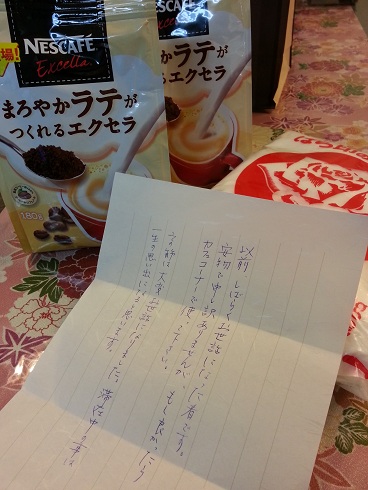 NESCAFÉ
Excella
まろやかラテが
つくれるエクセラ
180g
以前 しばらくお世話になった者です。
安物で申し訳ありませんが、もし良かったら
カフェコーナーで使って下さい。
その節は大変お世話になりました。滞在中の事は
一生の思い出になると思います。